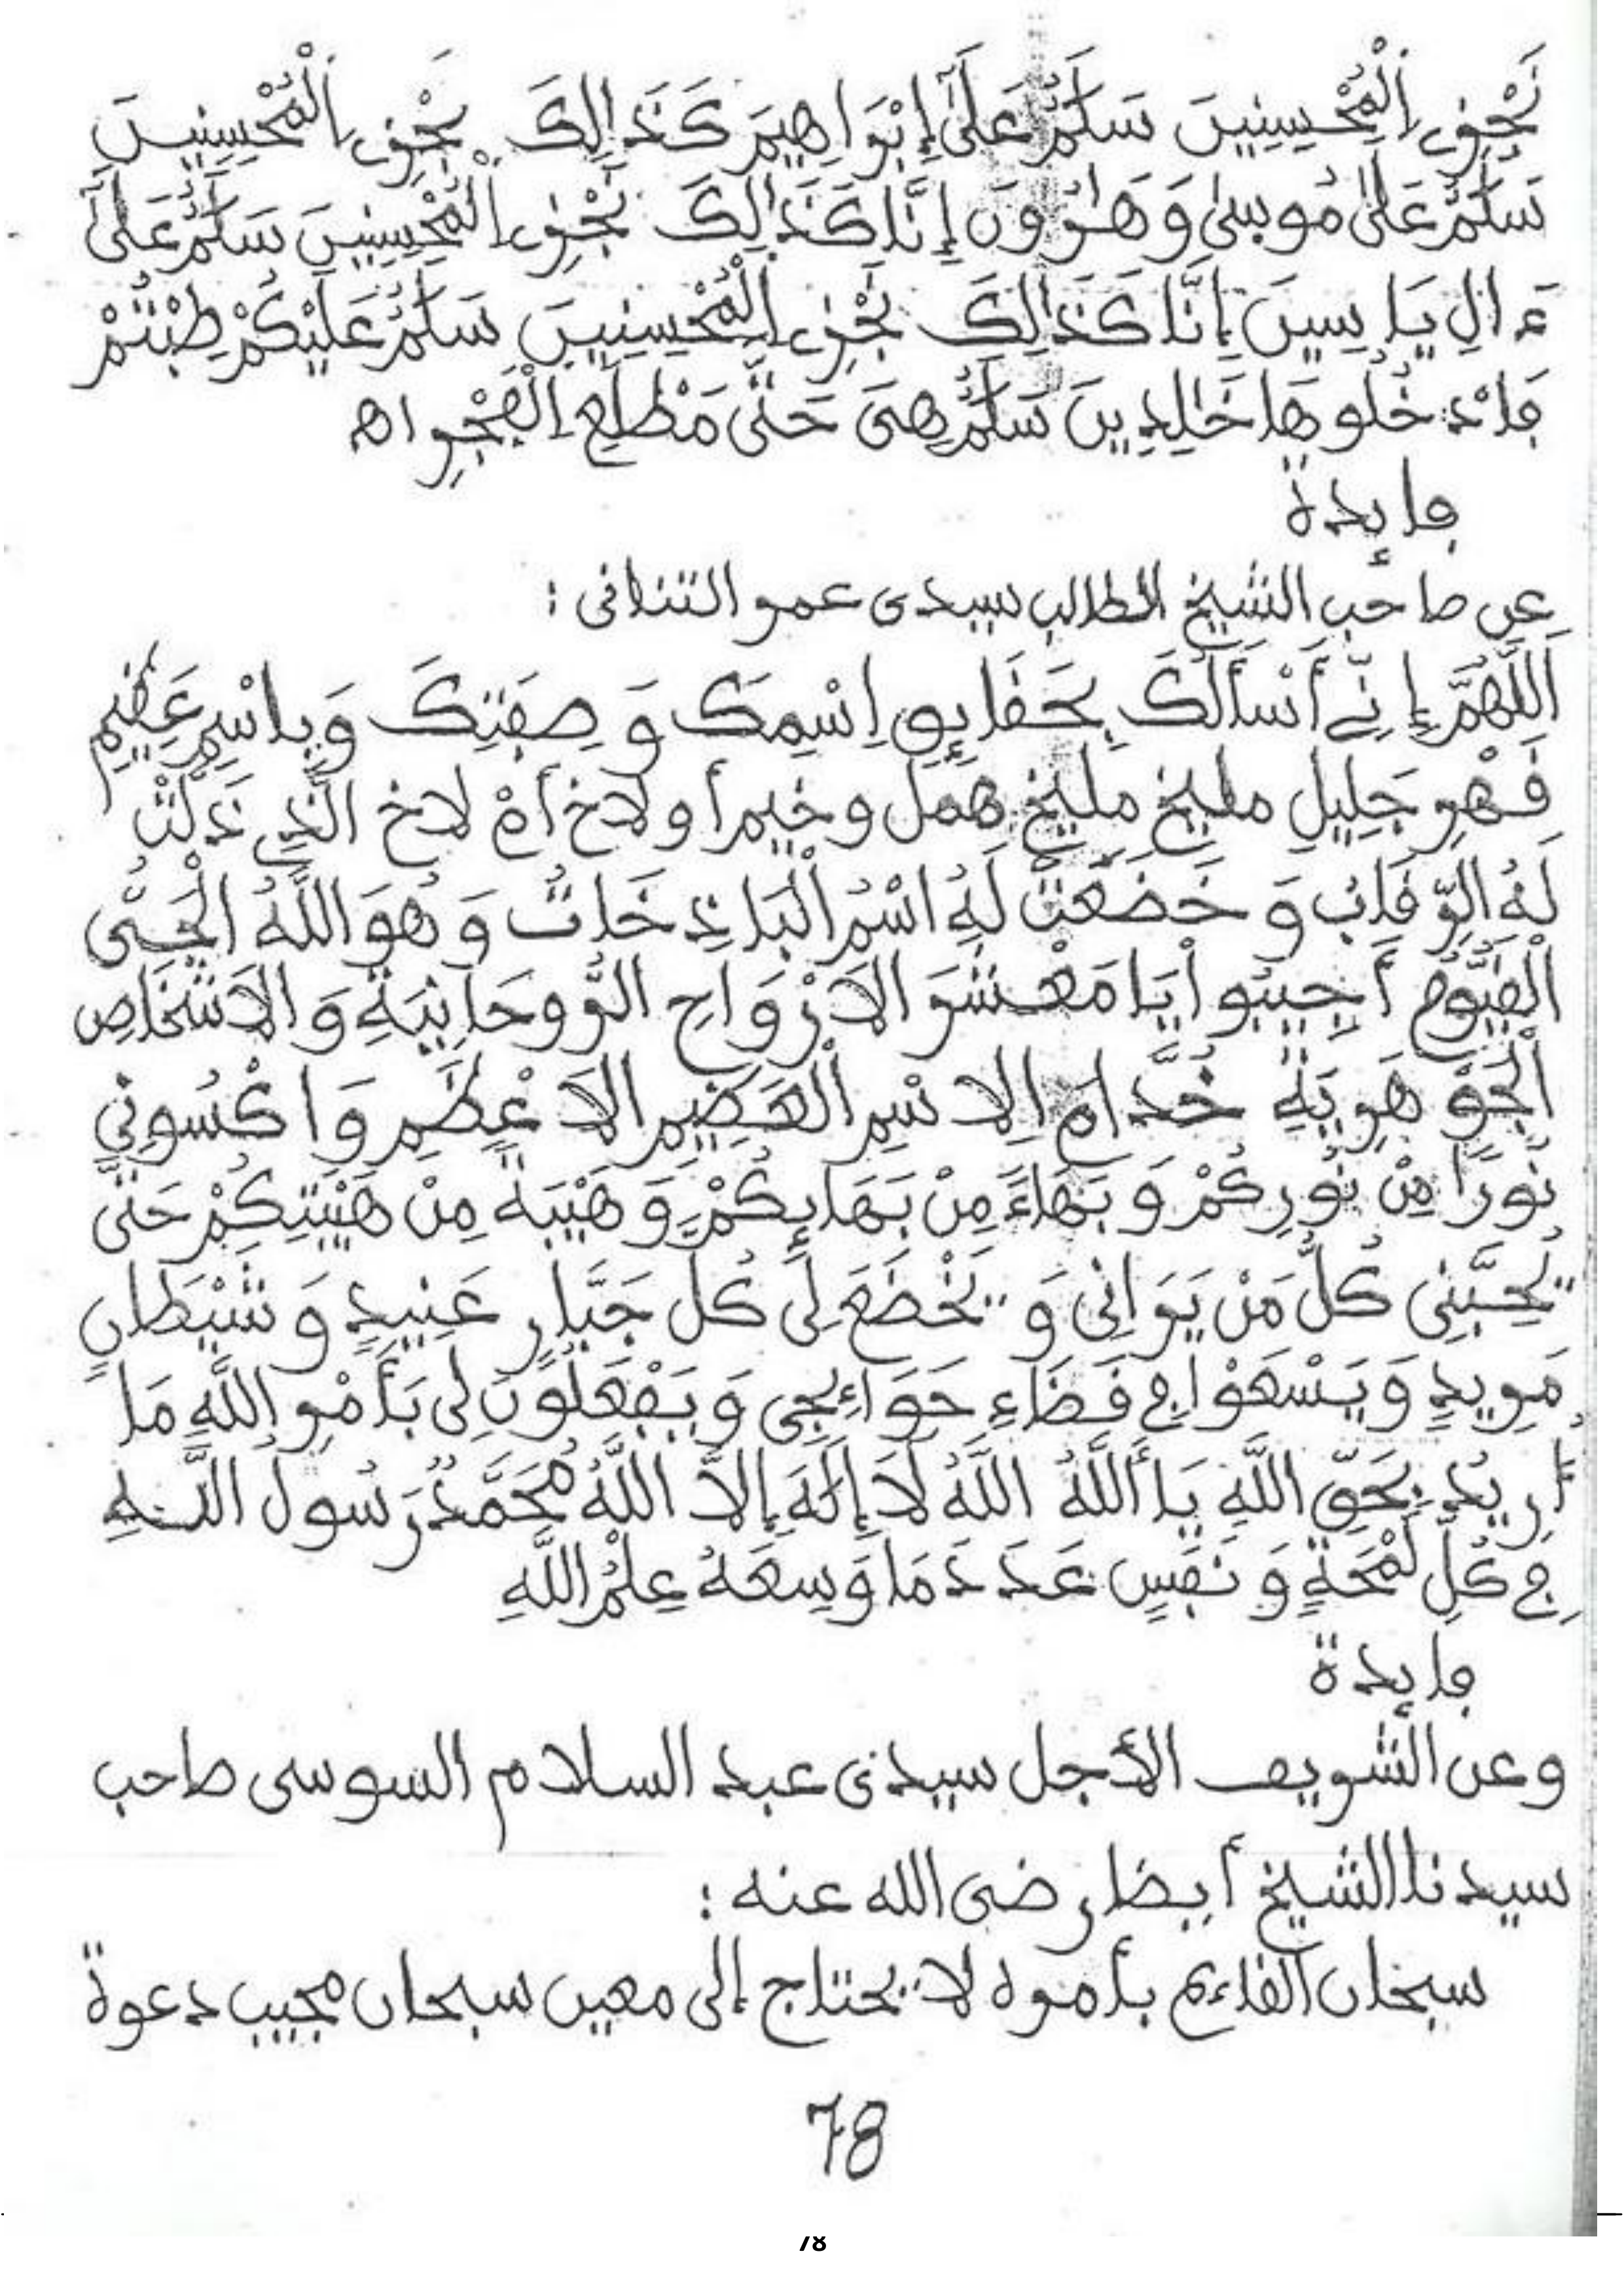 نَجْزِي الْمُحْسِنِينَ سَلَٰمٌ عَلَىٰ إِبْرَاهِيمَ كَذَٰلِكَ نَجْزِي الْمُحْسِنِينَ
سَلَٰمٌ عَلَىٰ مُوسَىٰ وَهَٰرُونَ إِنَّا كَذَٰلِكَ نَجْزِي الْمُحْسِنِينَ سَلَٰمٌ عَلَىٰ
ءَالِ يَاسِينَ إِنَّا كَذَٰلِكَ نَجْزِي الْمُحْسِنِينَ سَلَٰمٌ عَلَيْكُمْ طِبْتُمْ
فَادْخُلُوهَا خَٰلِدِينَ سَلَٰمٌ هِيَ حَتَّى مَطْلَعِ الْفَجْرِ اهـ
فايدة
عن صاحب الشيخ الطالب سيدى عمر التنانى :
اَللَّهُمَّ إِنِّي أَسْأَلُكَ بِحَقَايِقِ اِسْمِكَ وَصِفَتِكَ وَبِاسْمِ عَظِيمٍ
قَهْرٍ جَلِيلٍ مليخ مليخ همل وخيم أو لاخ أهْ لاخ الَّذِي ذَلَّتْ
لَهُ الرِّقَابُ وَخَضَعَتْ لَهُ اسْمُ الْبَاذِخَاتُ وَهُوَ اللَّهُ الْحَيُّ
الْقَيُّومُ أَجِيبُوا يَا مَعْشَرَ الاَرْوَاحِ الرُّوحَانِيَةِ وَالاَشْخَاصِ
الْجَوْهَرِيَةِ خُدَّامَ اِلاسْمِ الْعَظِيمِ الاَعْظَمِ وَاكْسُونِي
نُورًا مِنْ نُورِكُمْ وَبَهَاءً مِنْ بَهَايِكُمْ وَهَيْبَةً مِنْ هَيْبَتِكُمْ حَتَّى
يُحِبَّنِى كُلُّ مَنْ يَرَانِى وَيَخْضَعَ لِى كُلُّ جَبَّارٍ عَنِيدٍ وَشَيْطَانٍ
مَرِيدٍ وَيَسْعَوْا فِي قَضَاءِ حَوَائِجِى وَيَفْعَلُونَ لِى بَأَمْرِ اللَّهِ مَا
أُرِيدُ بِحَقِّ اللَّهِ يَا أَللَّهُ اللَّهُ لَا إِلَٰهَ إِلاَّ اللَّهُ مُحَمَّدٌ رَسُولُ اللَّهِ
فِي كُلِّ لَمْحَةٍ وَنَفَسٍ عَدَدَ مَا وَسِعَهُ عِلْمُ اللَّهِ
فايدة
وعن الشريف الأجل سيدى عبد السلام السوسى صاحب
سيدنا الشيخ أيضا رضى الله عنه :
سبحان القاءيم بأمره لا يحتاج إلى معين سبحان مجيب دعوة
78
78